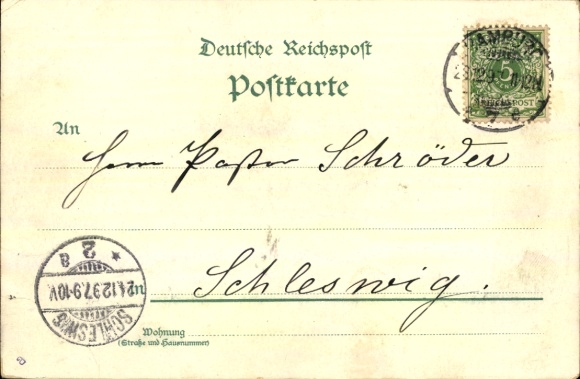 Deutsche Reichspost
Postkarte
HAMBURG
5
REICHSPOST
7 e
An
Herrn Pastor Schröder
2
a
24.12.97.9-10V.
SCHLESWIG
In
Schleswig.
Wohnung
(Straße und Hausnummer)